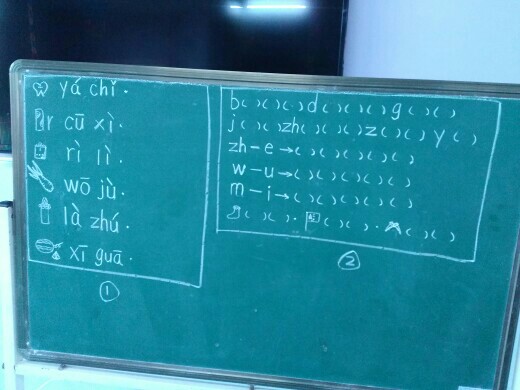 yá chǐ.
cū xì.
rì lì.
wō jù.
là zhú.
xī guā.
①
b( )( )( )d( )( )( )( )g( )( )
j( )( )zh( )( )( )z( )( )y( )
zh-e→( )( )( )( )( )
w-u→( )( )( )( )( )
m-i→( )( )( )( )( )
( )( ). ( )( ). ( )( )
②